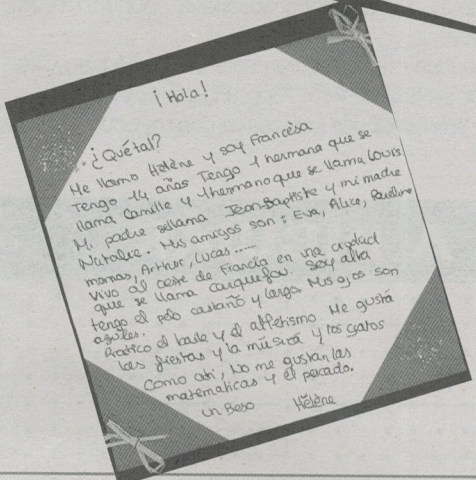 ¡Hola!
¿Qué tal?
Me llamo Hélène y soy Francesa
Tengo 14 años Tengo 1 hermana que se
llama Camille y 1 hermano que se llama Louis
Mi padre se llama Jean-Baptiste y mi madre
Natalie. Mis amigos son : Eva, Alice, Pauline
, Arthur, Lucas.....
Vivo al oeste de Francia en una ciudad
que se llama Carquefou. Soy alta
tengo el pelo castaño y largo. Mis ojos son
azules.
Pratico el baile y el atletismo. Me gusta
las fiestas y la música y los gatos
Como a ti, No me gustan las
matematicas y el pescado.
Un Beso Hélène